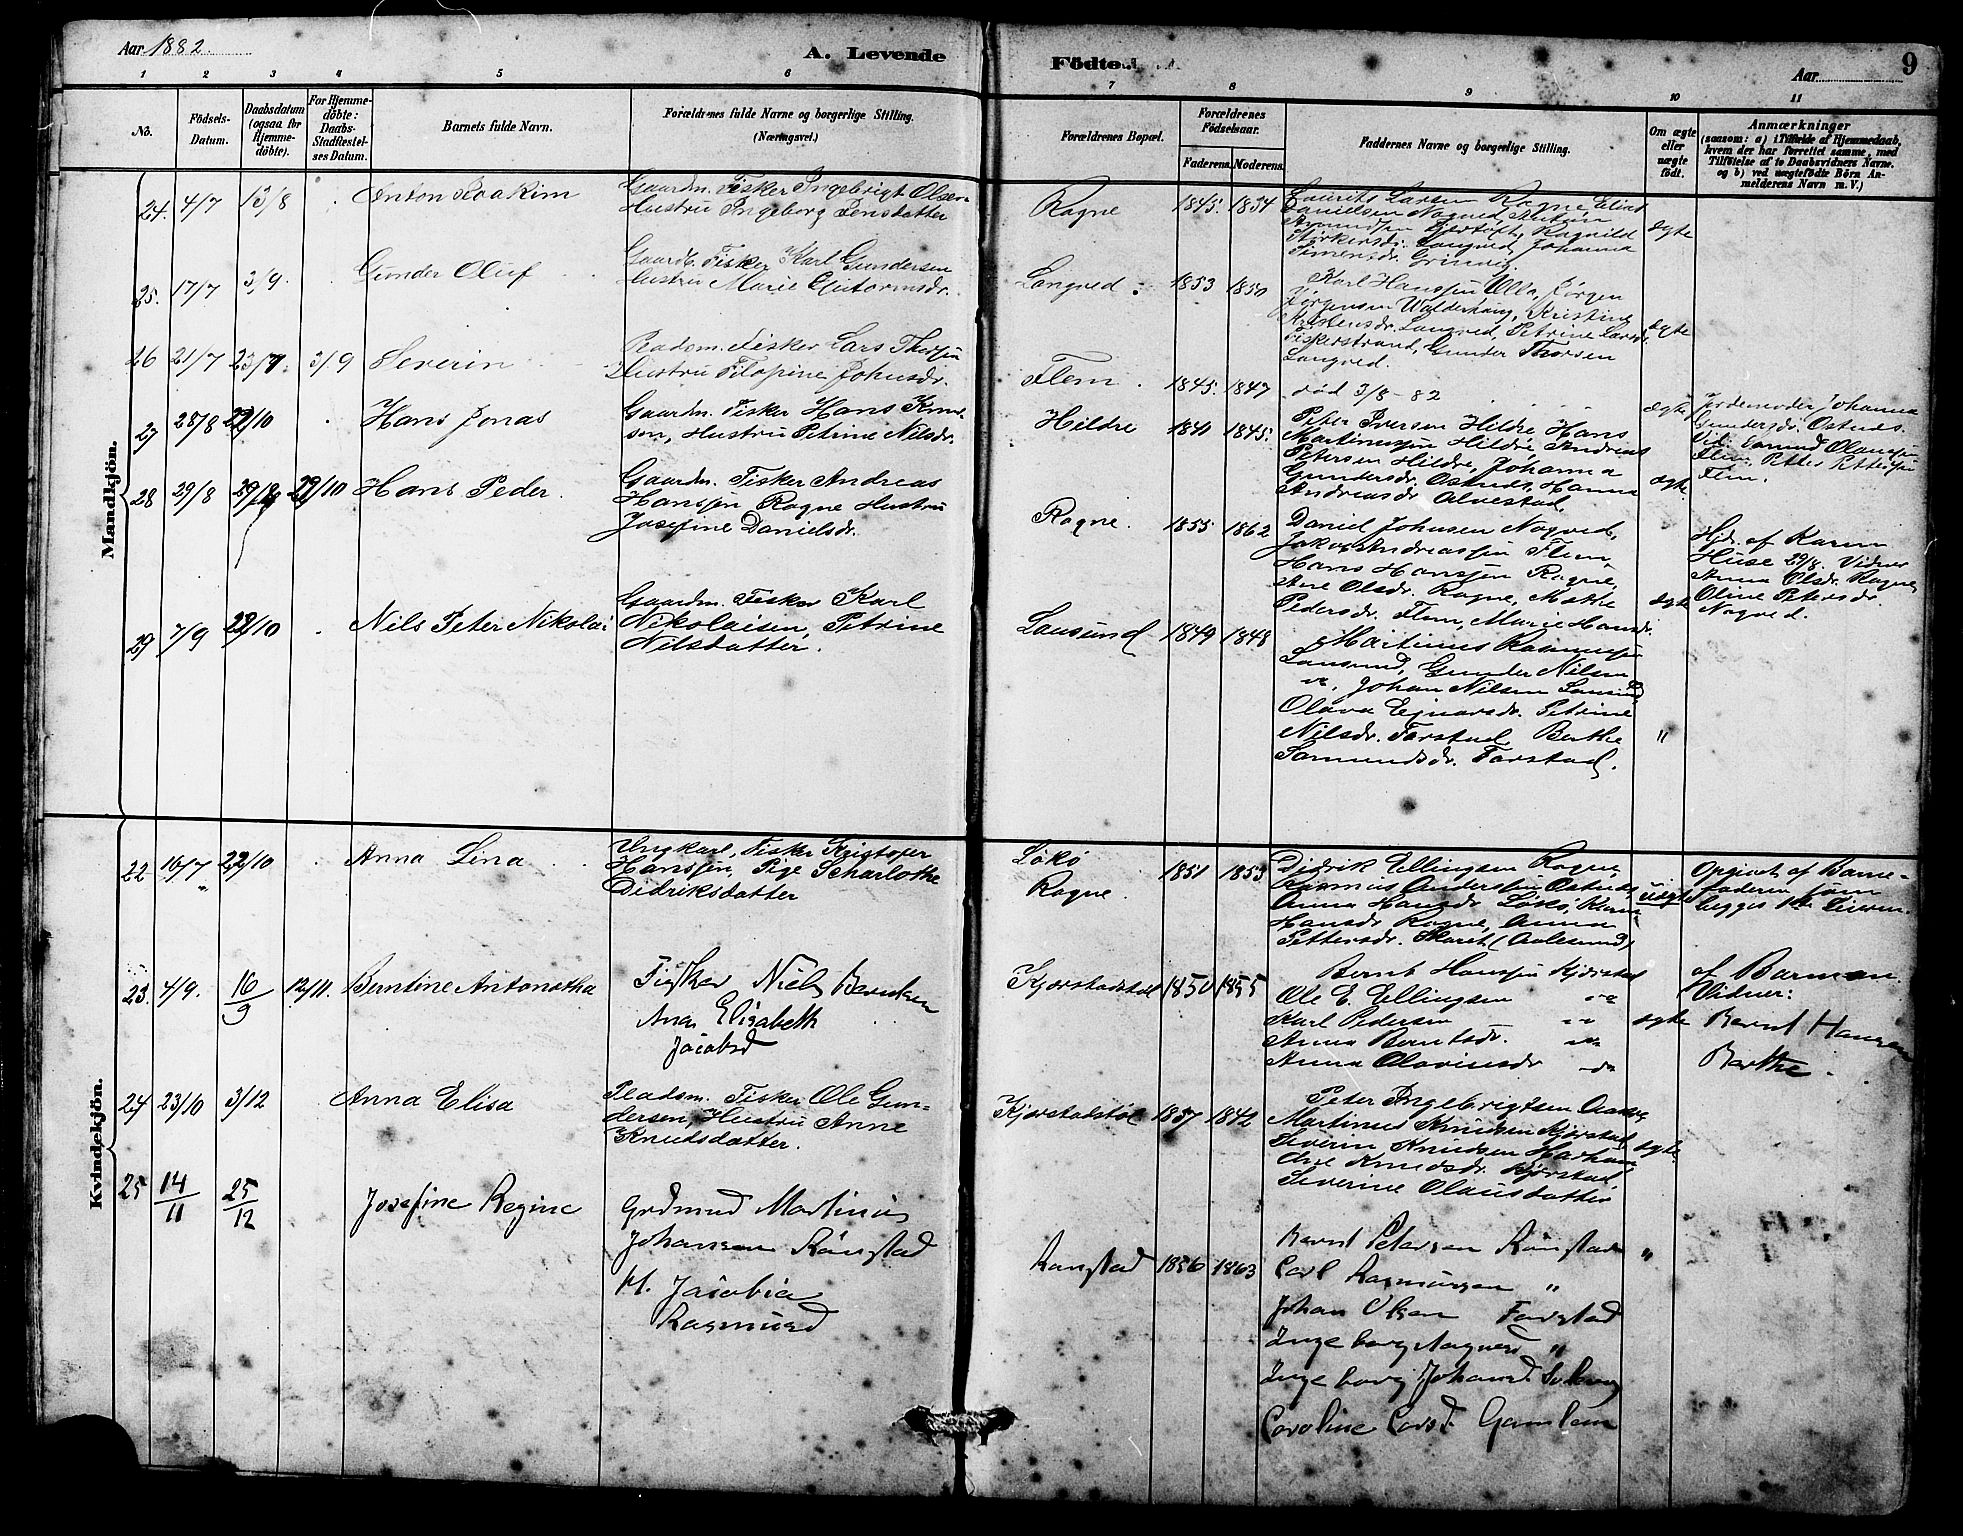 Aar 1882
A. Levende
Födte.
Aar
9
1 2 3 4 5 6 7 8 9 10 11
No.
Födsels-
Datum.
Daabsdatum
(ogsaa for
Hjemme-
döbte).
For Hjemme-
döbte:
Daabs-
Stadfæstel-
ses Datum.
Barnets fulde Navn.
Forældrenes fulde Navne og borgerlige Stilling.
(Næringsvei.)
Forældrenes Bopæl.
Forældrenes
Födselsaar.
Faderens. Moderens.
Faddernes Navne og borgerlige Stilling.
Om ægte
eller
uægte
födt.
Anmærkninger
(saasom: a) i Tilfælde af Hjemmedaab,
hvem der har forrettet samme, med
Tilföielse af to Daabsvidners Navne,
og b) ved uægtefödte Börn An-
melderens Navn m. V.)
Mandkjön.
24. 4/7 13/8 Anton Joakim
Gaardm. Fisker Ingebrigt Olsen
Hustru Ingeborg Jensdatter
Rogne 1845. 1854
Laurits Larsen Rogne
Danielsen Nogved,
Fjørtoft, Ragnild
Longved, Johanna
Simensdr. Grinvig.
ægte
25. 17/7 3/9. Gunder Oluf
Gaardb. Fisker Karl Gundersen
Hustru Marie Gutormsdr.
Longved: 1853 1850
Karl Hanssen Ulla, Jörgen
Jörgensen Walderhaug, Kristine
Longved, Petrine Larsdr.
Fiskerstrand, Gunder Thorsen
Longved.
ægte
26 21/7 23/7. 3/9 Severin
Pladsm. Fisker Lars
Hustru Johnsdr.
Flem. 1845. 1847 död 3/8-82
ægte
Jordemoder Johanna
Gundersdr. Ostnes.
Vid.
Flem, Petter Pettersen
Flem.
27 28/8 22/10 Hans Jonas
Gaardm. Fisker Hans Knud-
sen, Hustru Petrine Nilsdr.
Hildre 1841 1845.
Peter Iversen Hildre, Hans
Martinussen Hildre, Andreas
Petersen Hildre, Johanna
Gundersdr. Ostnes, Hanna
Andreasdr. Alvestad
ægte
28 29/8 29/8 22/10 Hans Peder.
Gaardm. Fisker Andreas
Hanssen Rogne Hustru
Josefine Danielsdr.
Rogne. 1855 1862
Daniel Johnsen Nogved,
Jakob Andreassen Flem,
Hans Hanssen Rogne,
Ane Olsdr. Rogne, Marthe
Pedersdr. Flem, Marie Hansdr.
ægte
Hjd. af Karen
Huse 29/8. Vidner
Anna Olsdr. Rogne,
Oline Petersdr.
Nogved.
29 7/9 22/10 Nils Peter Nikolai
Gaardm. Fisker Karl
Nikolaisen, Petrine
Nilsdatter.
Lausund 1849 1848
Martinus Rasmussen
Lausund, Gunder Nilsen
Johan Nilsen Lausund,
Olava Ejnarsdr. Petrine
Nilsdr. Farstad, Berthe
Samundsdr. Farstad.
"
Kvindekjön.
22 10/7 22/10 Anna Lina
Ungkarl, Fisker Kristofer
Hanssen, Pige Scharlothe
Didriksdatter
Lökö
Rogne. 1851 1853
Didrik Ellingsen Rogne,
Rasmus Anderssen Ostnes,
Anna Hansdr. Lökö, Karen
Hansdr. Rogne, Anna
Pettersdr. Skaret (Aalesund)
uægte
Opgivet af Barne-
faderen som
begges 1ste Leierm.
23. 4/9. 16/9 12/11. Berntine Antonetha
Fisker Niels Berntsen
Ana Elisabeth
Jacobsd
Kjerstadstöl 1850 1855
Bernt Hanssen Kjerstad
Ole E. Ellingsen
Karl Pedersen
Anna Berntsdr.
Anna Olavinesdr
ægte
af Barman.
Vidner:
Bernt Hansen
Barthe.
24 23/10 3/12 Anna Elisa
Pladsm. Fisker Ole Gun-
dersen, Hustru Anne
Knutsdatter.
Kjerstadstöl 1857 1842
Peter Ingebrigtsen
Martinus Knudsen Kjerstad,
Severin Knudsen Harham
Ane Knudsdr. Kjerstad,
Severine Olausdatter
ægte.
25 14/11 25/12 Josefine Regine
Gudmund Martinius
Johansen Rönstad
H. Jacobia
Rasmusd
Rönstad 1856 1863
Bernt Petersen Rönstad
Carl Rasmussen "
Johan Olsen Farstad
Ingeborg Magnesd "
Ingeborg Johansd. Solevag
Caroline Larsd. Gamlem
"